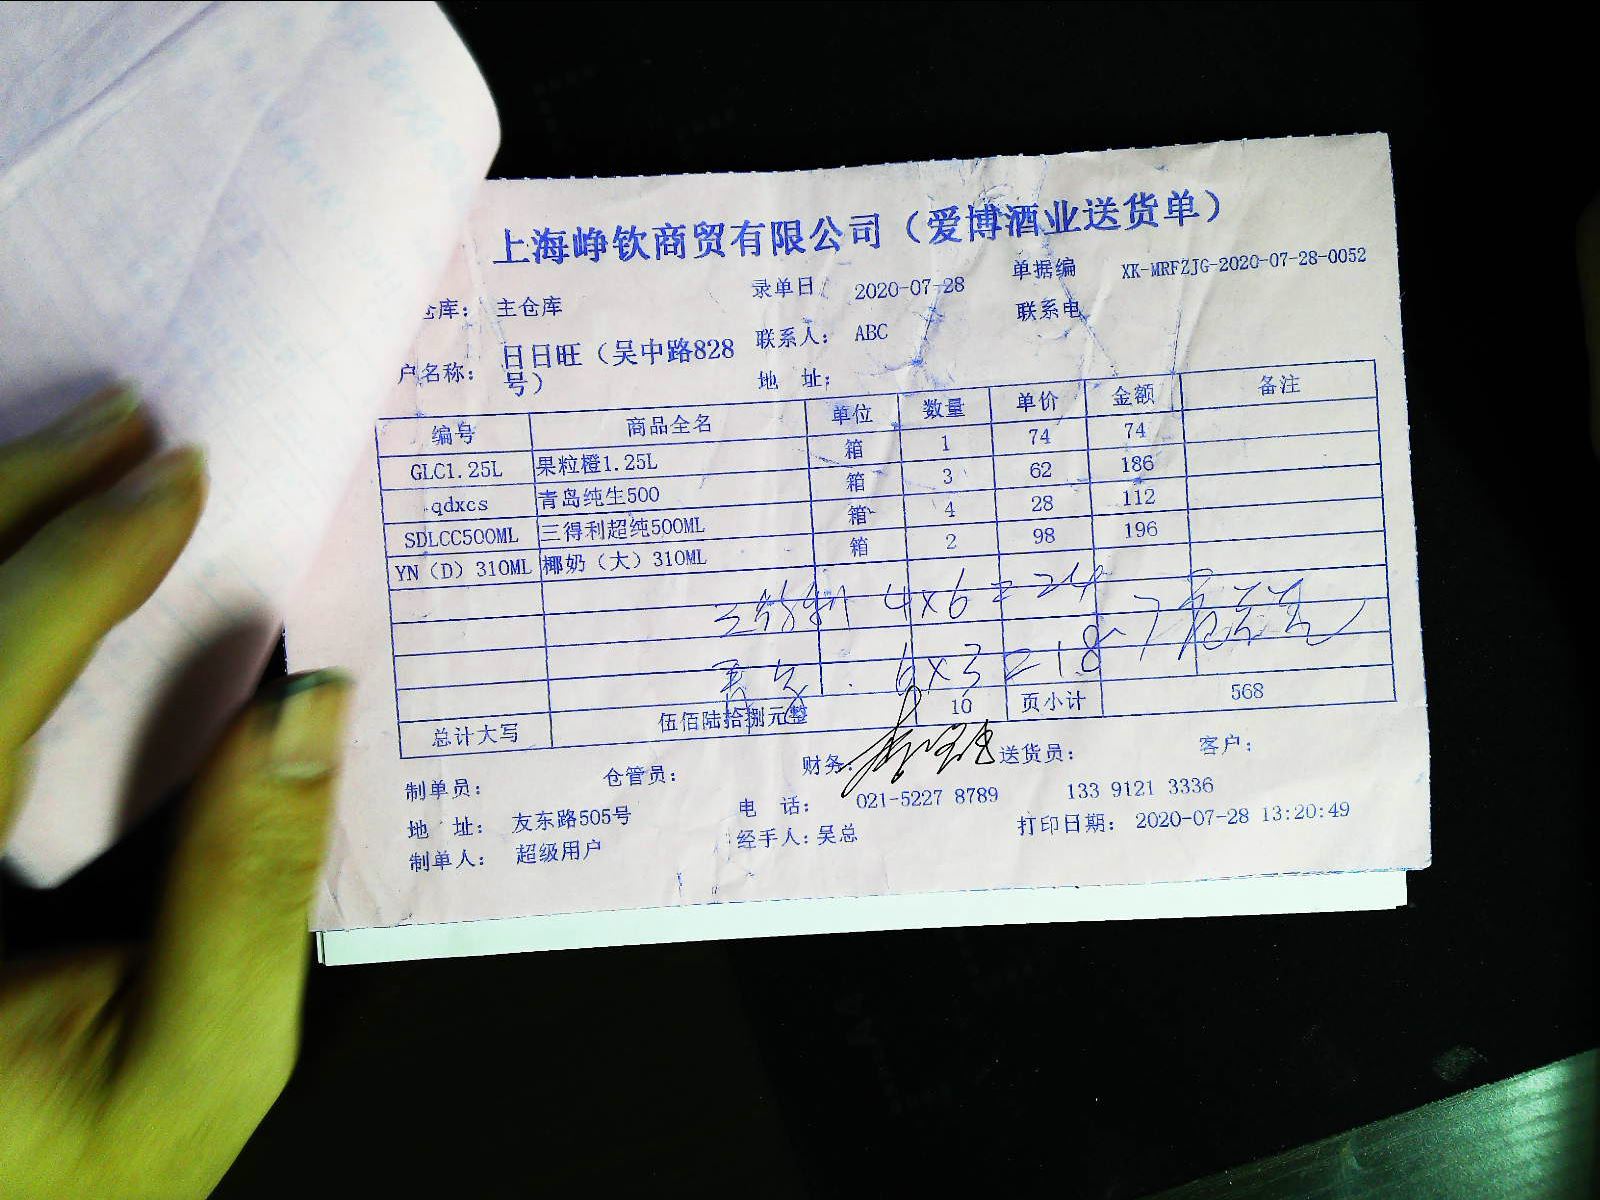 上海峥钦商贸有限公司（爱博酒业送货单）
仓库： 主仓库 录单日 2020-07-28 单据编 XK-MRFZJG-2020-07-28-0052
户名称： 日日旺（吴中路828号） 联系人： ABC 联系电
地 址：
编号 商品全名 单位 数量 单价 金额 备注
GLC1.25L 果粒橙1.25L 箱 1 74 74
qdxcs 青岛纯生500 箱 3 62 186
SDLCC500ML 三得利超纯500ML 箱 4 28 112
YN（D）310ML 椰奶（大）310ML 箱 2 98 196
三得利 4×6=24
6×3=18
总计大写 伍佰陆拾捌元整 10 页小计 568
制单员： 仓管员： 财务： 送货员： 客户：
地 址： 友东路505号 电 话： 021-5227 8789 133 9121 3336
制单人： 超级用户 经手人：吴总 打印日期： 2020-07-28 13:20:49